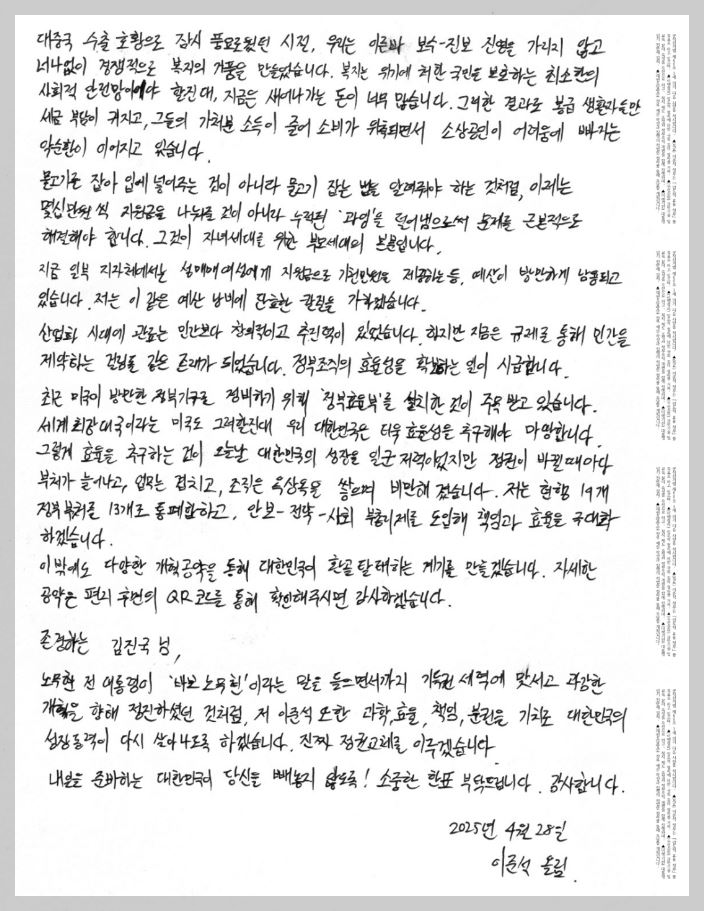 대중국 수출 호황으로 잠시 풍요로웠던 시절, 우리는 이른바 보수-진보 진영을 가리지 않고
너나없이 경쟁적으로 복지의 거품을 만들었습니다. 복지는 위기에 처한 국민을 보호하는 최소한의
사회적 안전망이어야 할진대, 지금은 새어나가는 돈이 너무 많습니다. 그러한 결과로 봉급 생활자들만
세금 부담이 커지고, 그들의 가처분 소득이 줄어 소비가 위축되면서 소상공인이 어려움에 빠지는
악순환이 이어지고 있습니다.
물고기를 잡아 입에 넣어주는 것이 아니라 물고기 잡는 법을 알려줘야 하는 것처럼, 이제는
몇십만원씩 지원금을 나눠줄 것이 아니라 누적된 '과잉'을 덜어냄으로써 문제를 근본적으로
해결해야 합니다. 그것이 자녀세대를 위한 부모세대의 본분입니다.
지금 일부 지자체에서는 성매매 여성에게 지원금으로 기천만원을 제공하는 등, 예산이 방만하게 남용되고
있습니다. 저는 이 같은 예산 낭비에 단호한 칼질을 가하겠습니다.
산업화 시대에 관료는 민간보다 창의적이고 추진력이 있었습니다. 하지만 지금은 규제를 통해 민간을
제약하는 걸림돌 같은 존재가 되었습니다. 정부조직의 효율성을 확보하는 일이 시급합니다.
최근 미국이 방만한 정부기구를 정비하기 위해 '정부효율부'를 설치한 것이 주목 받고 있습니다.
세계 최강대국이라는 미국도 그러할진대 우리 대한민국은 더욱 효율성을 추구해야 마땅합니다.
그렇게 효율을 추구하는 것이 오늘날 대한민국의 성장을 일군 저력이었지만 정권이 바뀔 때마다
부처가 늘어나고, 업무는 겹치고, 조직은 옥상옥을 쌓으며 비만해 졌습니다. 저는 현행 19개
정부부처를 13개로 통폐합하고, 안보-전략-사회 부총리제를 도입해 책임과 효율을 극대화
하겠습니다.
이 밖에도 다양한 개혁공약을 통해 대한민국이 환골탈태하는 계기를 만들겠습니다. 자세한
공약은 편지 후면의 QR코드를 통해 확인해주시면 감사하겠습니다.
존경하는 김진국 님,
노무현 전 대통령이 '바보 노무현'이라는 말을 들으면서까지 기득권 세력에 맞서고 과감한
개혁을 향해 정진하셨던 것처럼, 저 이준석 또한 과학, 효율, 책임, 분권을 기치로 대한민국의
성장동력이 다시 살아나도록 하겠습니다. 진짜 정권교체를 이루겠습니다.
내일을 준비하는 대한민국이 당신을 빼놓지 않도록! 소중한 한표 부탁드립니다. 감사합니다.
2025년 4월 28일
이준석 올림.